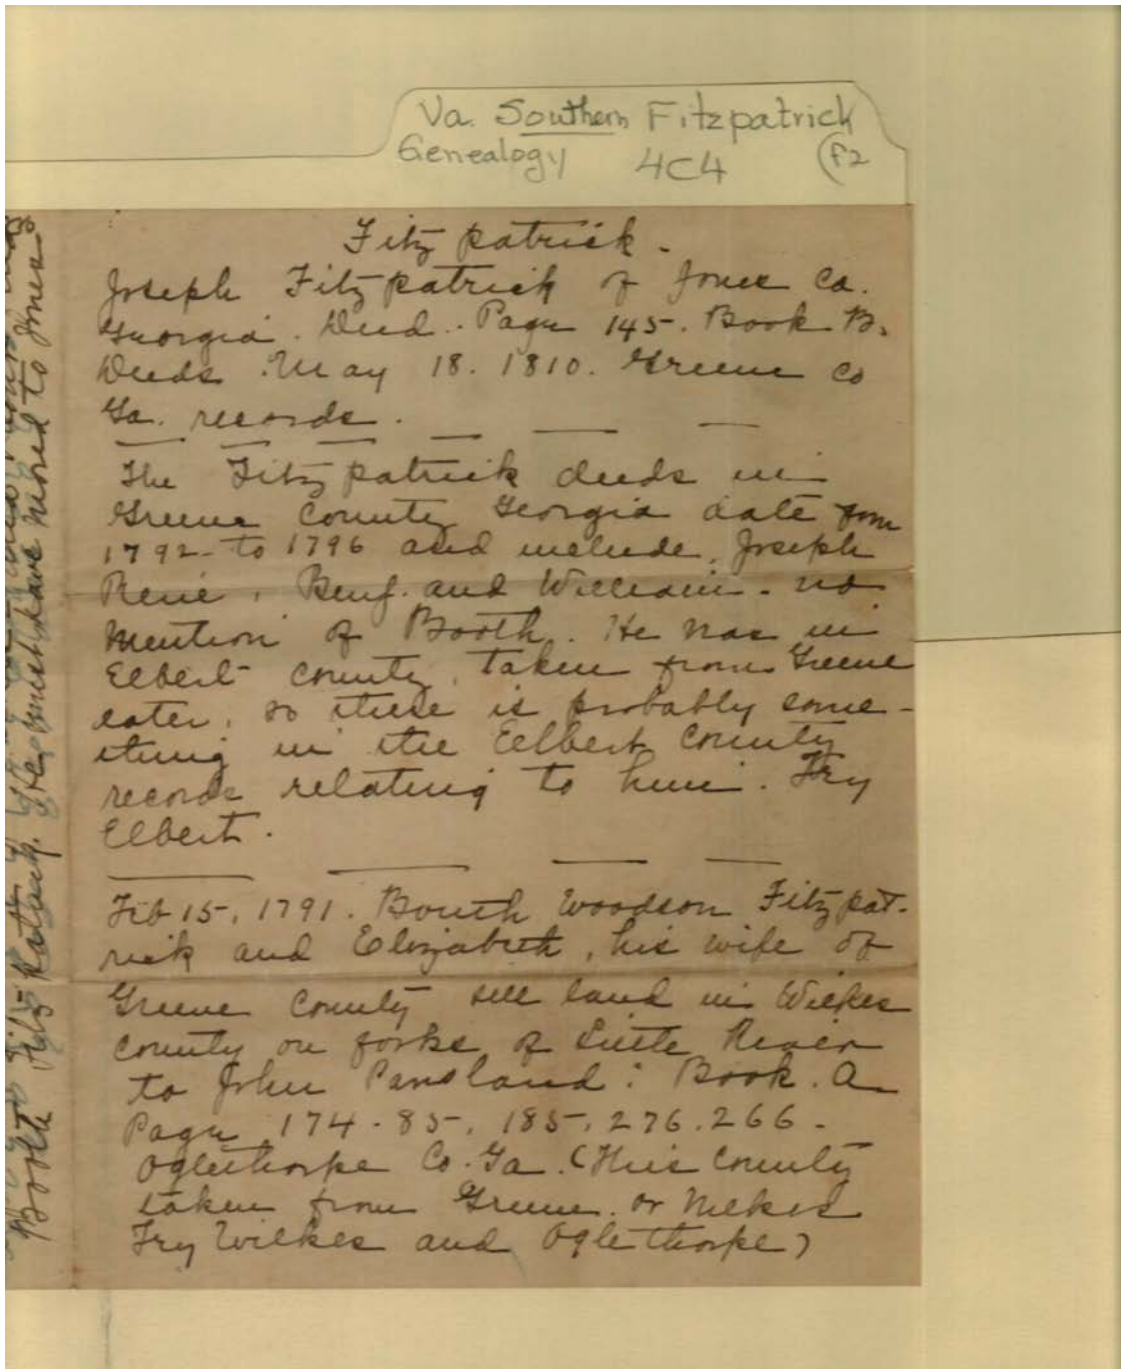 Va. Southern Fitzpatrick
Genealogy 4C4 (F2
Fitzpatrick -
Joseph Fitzpatrick of Jones Co.
Georgia. Deed. Page 145. Book B.
Deeds. May 18. 1810. Greene Co
Ga. records.
The Fitzpatrick deeds in
Greene County Georgia date from
1792 - to 1796 and include, Joseph
Rene, Benj. and William. no
mention of Booth. He was in
Elbert County, taken from Greene
later, so there is probably some-
thing in the Eelbert County
records relating to him. Try
Elbert.
Feb 15, 1791. Bouth Woodson Fitzpat-
rick and Elizabeth, his wife of
Greene County sell land in Wilkes
County on forks of Little River
to John : Book. A
Page 174 - 85 -, 185, 276. 266 -
Oglethorpe Co. Ga. (This County
taken from Greene. or Wilkes
Try Wilkes and Oglethorpe)
Booth must have moved to Jones